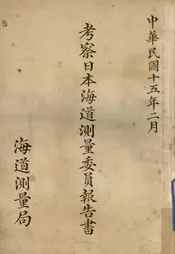 中華民國十五年二月
考察日本海道測量委員報告書
海道測量局